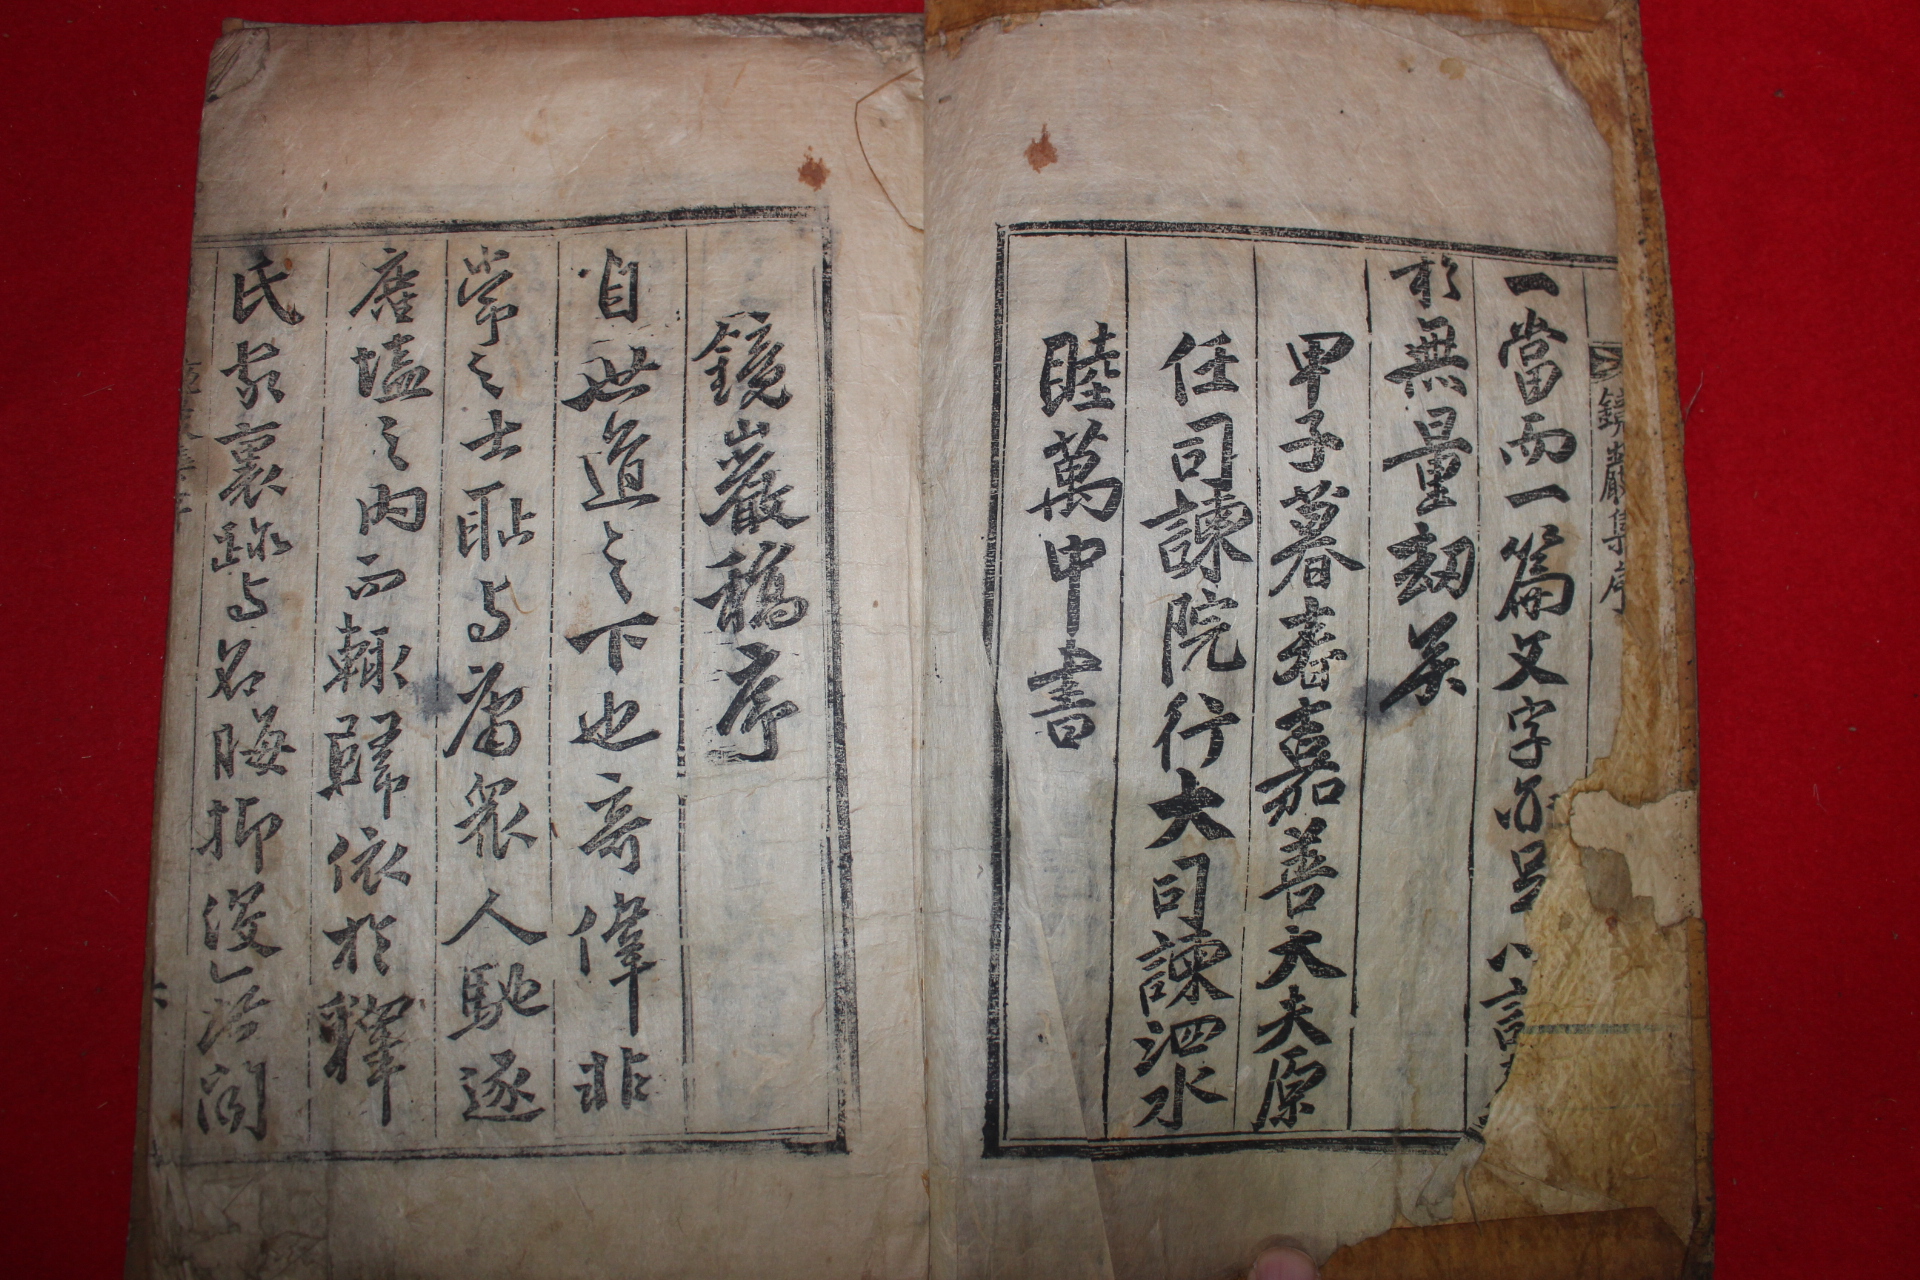 鏡巖集序
一當而一篇文字亦足以
於無量劫矣
甲子暮春嘉善大夫原
任司諫院行大司諫泗水
睦萬中書
鏡巖稿序
自世道之下也奇偉非
常之士恥与庸衆人馳逐
唐塩之內而輒歸依於釋
氏家裏跡与名晦抑沒而